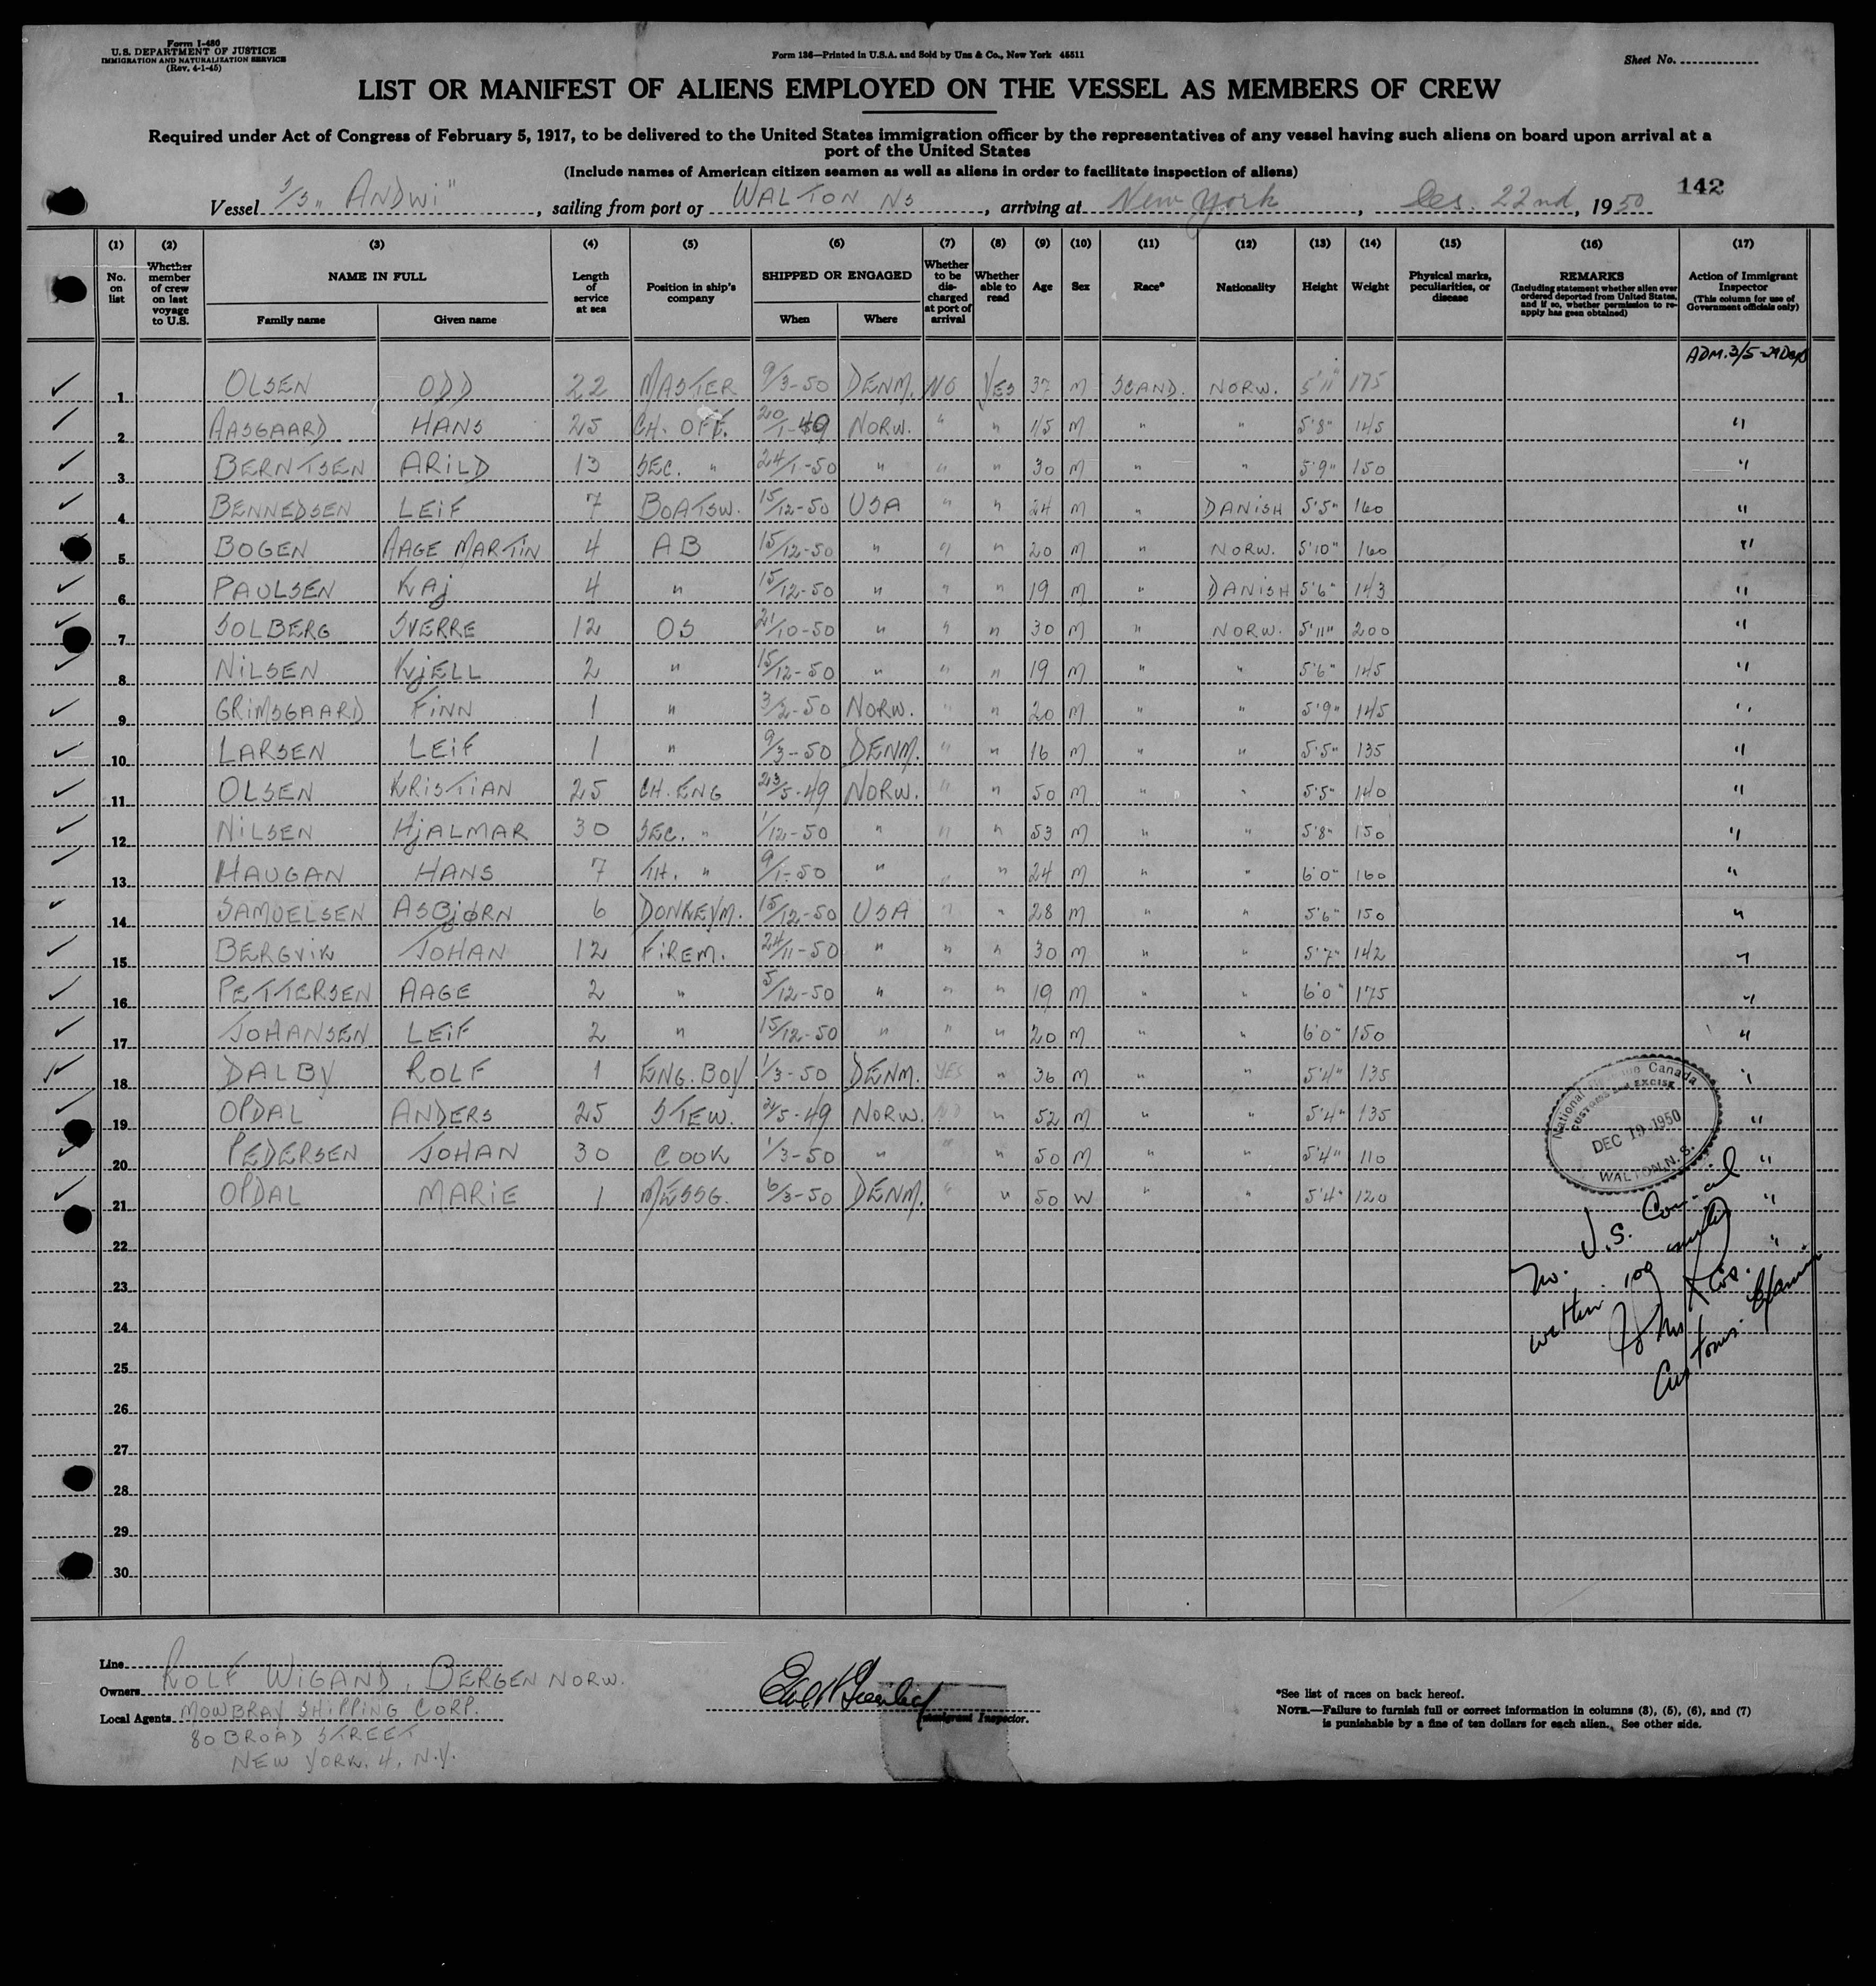 Form I-480
U.S. DEPARTMENT OF JUSTICE
IMMIGRATION AND NATURALIZATION SERVICE
(Rev. 4-1-45)
Form 136—Printed in U.S.A. and Sold by Unz & Co., New York 45511
Sheet No.
LIST OR MANIFEST OF ALIENS EMPLOYED ON THE VESSEL AS MEMBERS OF CREW
Required under Act of Congress of February 5, 1917, to be delivered to the United States immigration officer by the representatives of any vessel having such aliens on board upon arrival at a
port of the United States
(Include names of American citizen seamen as well as aliens in order to facilitate inspection of aliens)
142
Vessel S/S "ANDWI", sailing from port of WALTON NS, arriving at New York, Dec. 22nd, 1950
(1) (2) (3) (4) (5) (6) (7) (8) (9) (10) (11) (12) (13) (14) (15) (16) (17)
No. on list
Whether member of crew on last voyage to U.S.
NAME IN FULL
Family name Given name
Length of service at sea
Position in ship's company
SHIPPED OR ENGAGED
When Where
Whether to be discharged at port of arrival
Whether able to read
Age
Sex
Race*
Nationality
Height
Weight
Physical marks, peculiarities, or disease
REMARKS
(Including statement whether alien ever ordered deported from United States, and if so, whether permission to reapply has geen obtained)
Action of Immigrant Inspector
(This column for use of Government officials only)
ADM. 3/5-29 Days
1 OLSEN ODD 22 MASTER 9/3-50 DENM. NO YES 37 M SCAND. NORW. 5'11" 175
2 AASGAARD HANS 25 CH. OFF. 20/1-49 NORW. " " 45 M " " 5'8" 145 "
3 BERNTSEN ARILD 13 SEC. " 24/1-50 " " " 30 M " " 5'9" 150 "
4 BENNEDSEN LEIF 7 BOATSW. 15/12-50 USA " " 24 M " DANISH 5'5" 160 "
5 BOGEN AAGE MARTIN 4 AB 15/12-50 " " " 20 M " NORW. 5'10" 160 "
6 PAULSEN KAJ 4 " 15/12-50 " " " 19 M " DANISH 5'6" 143 "
7 SOLBERG SVERRE 12 OS 21/10-50 " " " 30 M " NORW. 5'11" 200 "
8 NILSEN KJELL 2 " 15/12-50 " " " 19 M " " 5'6" 145 "
9 GRIMSGAARD FINN 1 " 3/2-50 NORW. " " 20 M " " 5'9" 145 "
10 LARSEN LEIF 1 " 9/3-50 DENM. " " 16 M " " 5'5" 135 "
11 OLSEN KRISTIAN 25 CH. ENG 23/5-49 NORW. " " 50 M " " 5'5" 140 "
12 NILSEN HJALMAR 30 SEC. " 1/12-50 " " " 53 M " " 5'8" 150 "
13 HAUGAN HANS 7 TH. " 9/1-50 " " " 24 M " " 6'0" 160 "
14 SAMUELSEN ASBJØRN 6 DONKEYM. 15/12-50 USA " " 28 M " " 5'6" 150 "
15 BERGVIK JOHAN 12 FIREM. 24/11-50 " " " 30 M " " 5'7" 142 "
16 PETTERSEN AAGE 2 " 5/12-50 " " " 19 M " " 6'0" 175 "
17 JOHANSEN LEIF 2 " 15/12-50 " " " 20 M " " 6'0" 150 "
18 DALBY ROLF 1 ENG. BOY 1/3-50 DENM. YES " 36 M " " 5'4" 135 "
19 OPDAL ANDERS 25 STEW. 24/5-49 NORW. NO " 52 M " " 5'4" 135 "
20 PEDERSEN JOHAN 30 COOK 1/3-50 " " " 50 M " " 5'4" 110 "
21 OPDAL MARIE 1 MESSG. 6/3-50 DENM. " " 50 W " " 5'4" 120 "
22
23
24
25
26
27
28
29
30
National Revenue Canada
CUSTOMS and EXCISE
DEC 19 1950
WALTON, N.S.
No. U.S. Consul
within 100 miles
Customs Examiner
Line
Owners ROLF WIGAND, BERGEN NORW.
Local Agents MOWBRAY SHIPPING CORP.
80 BROAD STREET
NEW YORK, 4, N.Y.
Immigrant Inspector.
*See list of races on back hereof.
NOTE.—Failure to furnish full or correct information in columns (3), (5), (6), and (7)
is punishable by a fine of ten dollars for each alien. See other side.